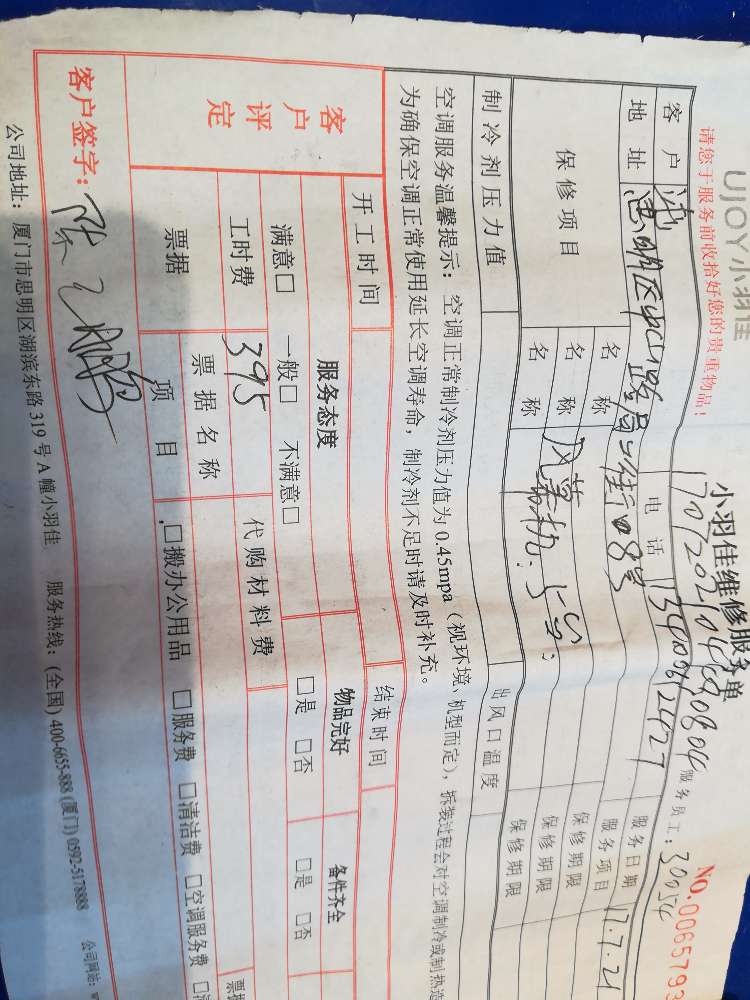 UJOY小羽佳
小羽佳维修服务单
NO.0065793
请您于服务前收拾好您的贵重物品!
服务员工: 30054
客户 电话 服务日期 17.7.21
地址 思明区中山路局口街 服务项目
保修项目 名称 保修期限
名称 风幕机: 保修期限
名称 保修期限
制冷剂压力值 出风口温度
空调服务温馨提示: 空调正常制冷剂压力值为 0.45mpa (视环境、机型而定), 拆装过程会对空调制冷或制热造
为确保空调正常使用延长空调寿命, 制冷剂不足时请及时补充。
开工时间 结束时间
客户评定 服务态度 物品完好 备件齐全
满意□ 一般□ 不满意□ □是 □否 □是 □否
工时费 395 代购材料费
票据 票据名称 票据
项目 □搬办公用品 □服务费 □清洁费 □空调服务费
客户签字:
公司地址: 厦门市思明区湖滨东路 319 号 A 幢小羽佳 服务热线: (全国) 400-6655-888 (厦门) 0592-5178888 公司网站: